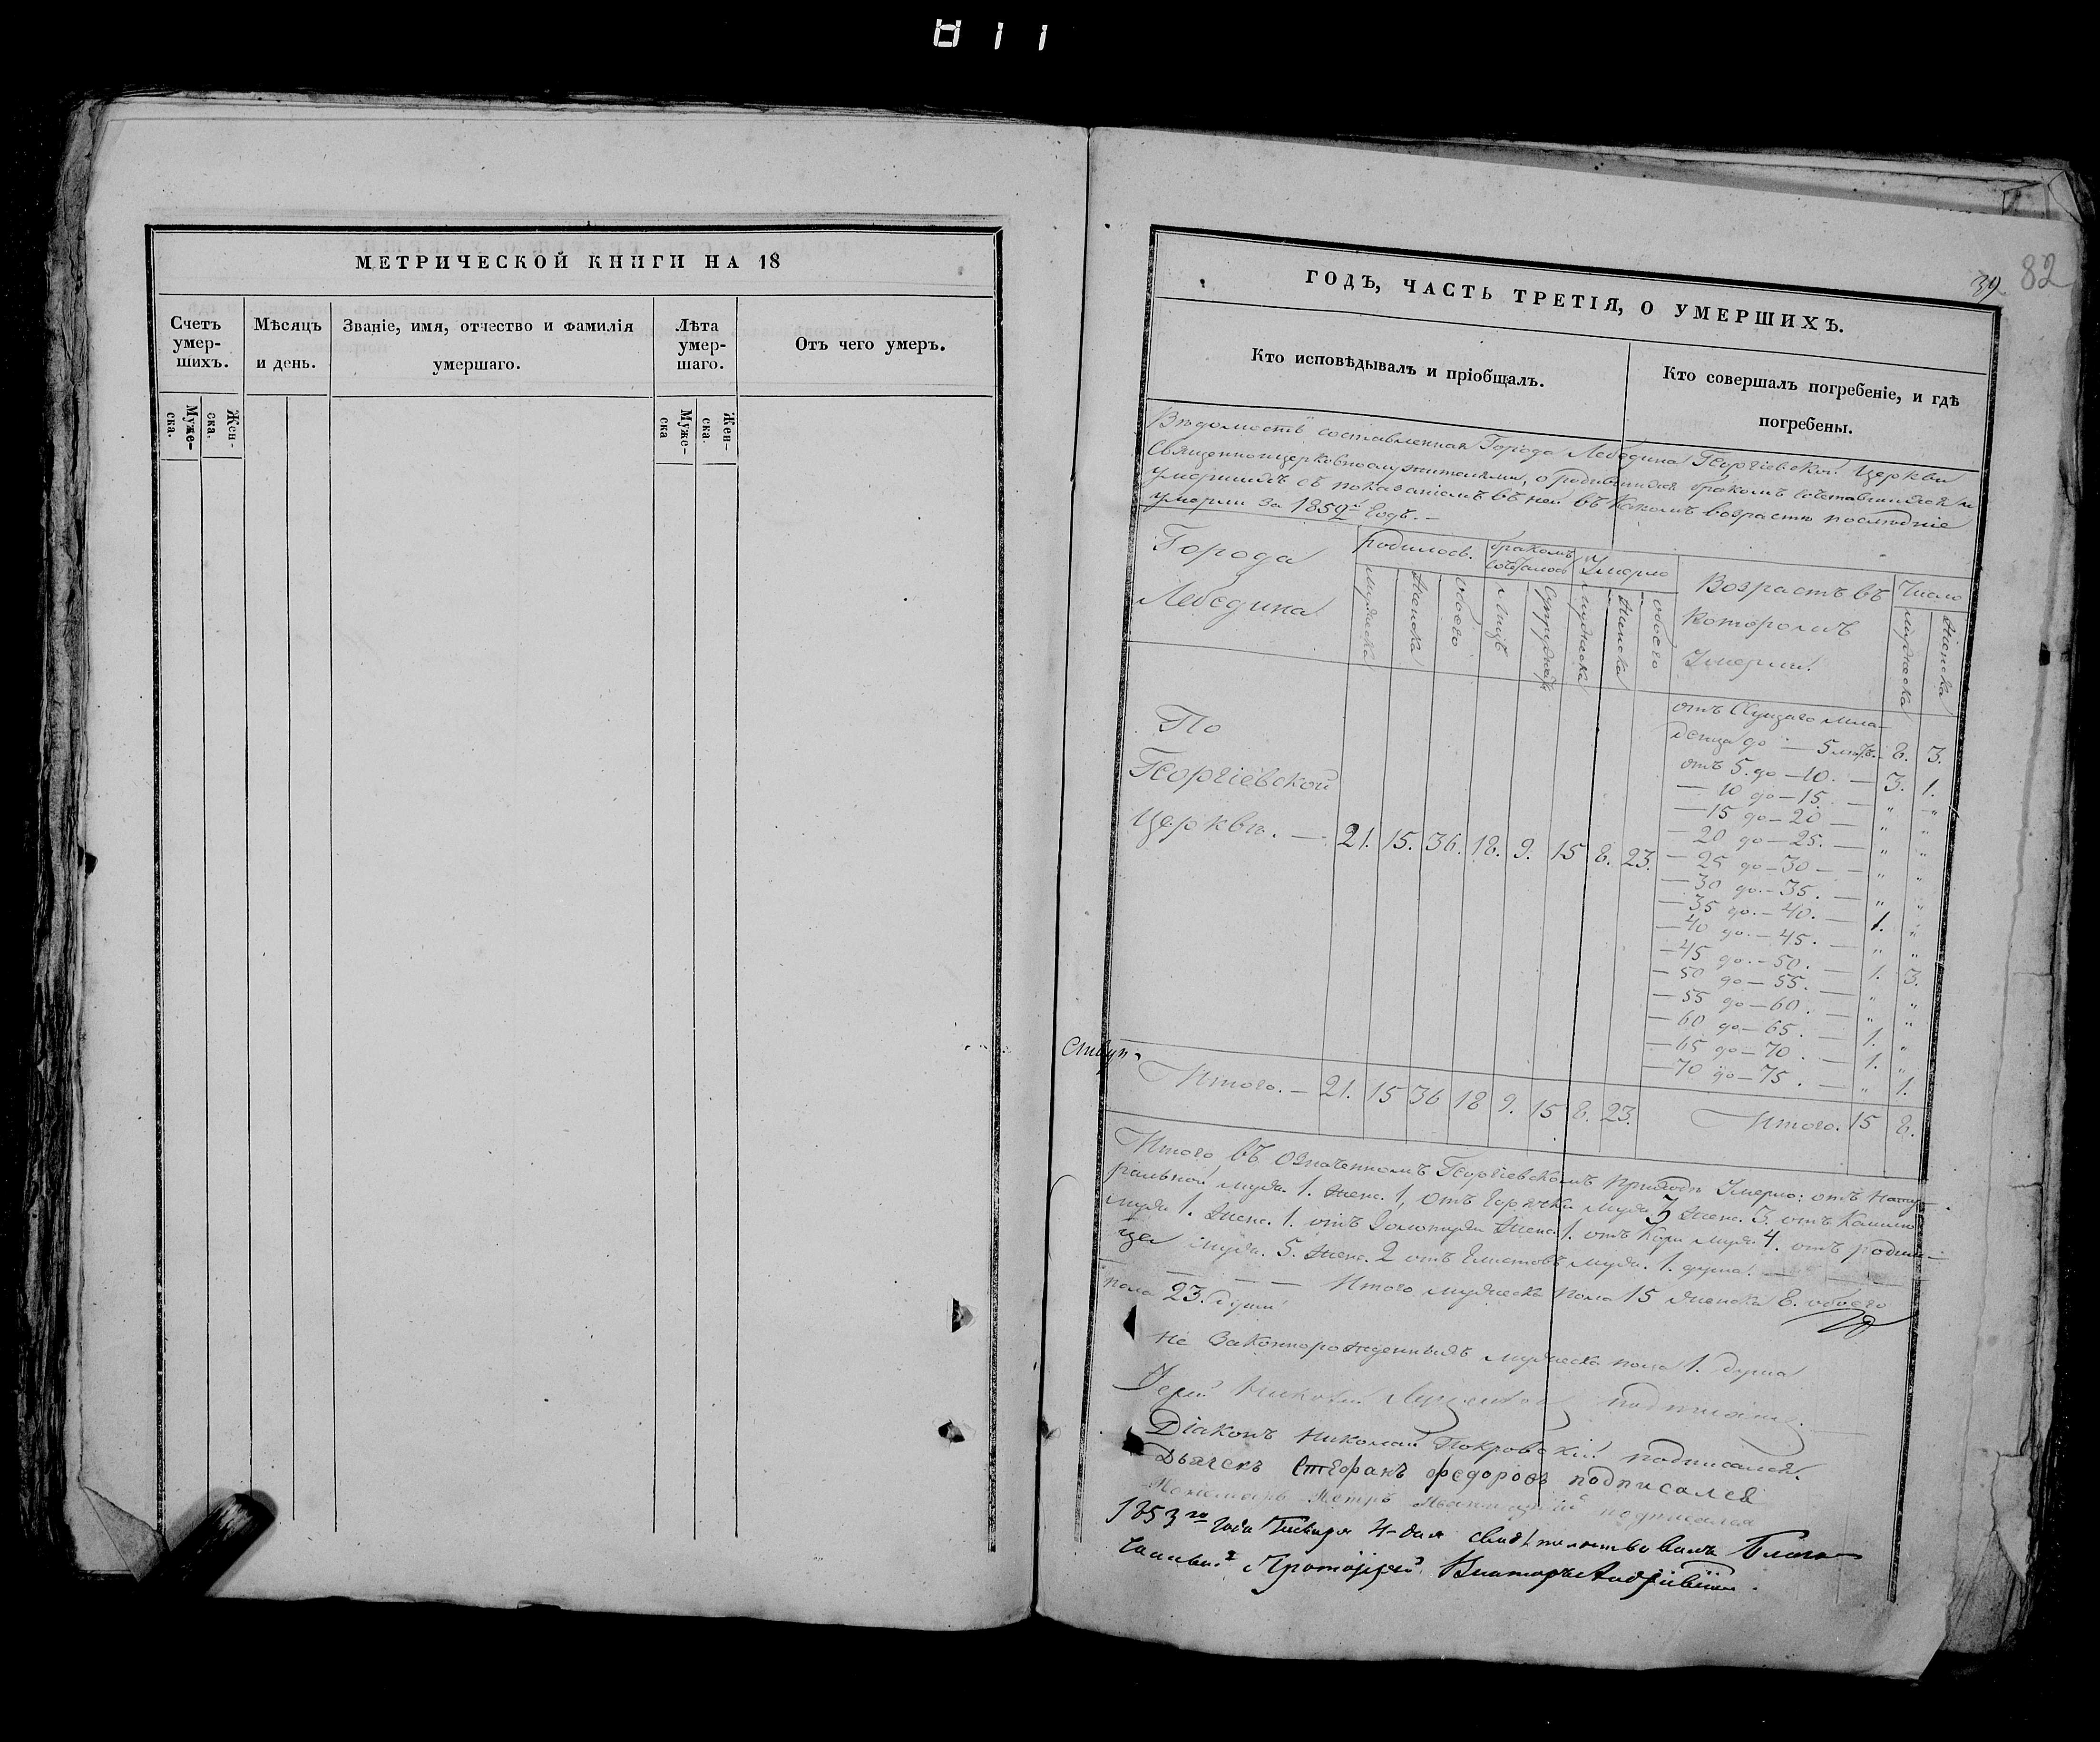 811
МЕТРИЧЕСКОЙ КНИГИ НА 18
Счетъ умер-шихъ.
Мѣсяцъ и день.
Званіе, имя, отчество и фамилія умершаго.
Лѣта умер-шаго.
Отъ чего умеръ.
Муже-ска.
Жен-ска.
Муже-ска
Жен-ска.
39
82
ГОДЪ, ЧАСТЬ ТРЕТІЯ, О УМЕРШИХЪ.
Кто исповѣдывалъ и пріобщалъ.
Кто совершалъ погребеніе, и гдѣ погребены.
Вѣдомость составленная Города Лебедина Георгіевской Церкви
Священноцерковнослужителями, о родившихся бракомъ сочетавшихся и
умершихъ съ показаніемъ въ ней въ какомъ возрастѣ послѣдніе
умерли за 1852й Годъ. —
Города Лебедина
родилось.
бракомъ
Умерло
Возрастъ въ которомъ Умерли.
Число
мужеска
женска
обоего
Лицъ
мужеска
женска
обоего
мужеска
женска
По
Георгіевской
Церкви. — 21. 15. 36. 18. 9. 15 8. 23.
отъ Сущаго мла-
денца до — 5 лѣтъ. 8. 3.
отъ 5. до — 10. — 3. 1.
— 10 до — 15. — " "
— 15 до — 20 — " "
— 20 до — 25. — " "
— 25 до — 30 — " "
— 30 до — 35. — " "
— 35 до — 40. — 1. "
— 40 до — 45. — " "
— 45 до — 50. — 1. 3.
— 50 до — 55. — " "
— 55 до — 60. — " "
— 60 до — 65. — 1. "
— 65 до — 70. — 1. "
— 70 до — 75. — " 1.
Итого. — 21. 15 36 18 9. 15 8. 23.
Итого. 15 8.
Итого въ означенномъ Георгіевскомъ приходѣ Умерло: отъ Нату-
ральной муж. 1. жен. 1, отъ Горячки муж. 3 жен. 3. отъ Кашлю
муж. 1. жен. 1. отъ Золотухи жен. 1. отъ Кори муж. 4. отъ родим-
ца муж. 5. жен. 2 отъ Глистовъ муж. 1. душа. —
— — — Итого мужеска пола 15 женска 8. обоего
пола 23. души
Не Законнорожденныхъ мужеска пола 1. душа
Іерей
Діаконъ Николай Покровскій подписался.
Дьячекъ Стефанъ Федоровъ подписался
Пономарь Петръ подписался
1853го года Генваря 4-дня свидѣтельствовалъ Благо-
чинный Протоіерей